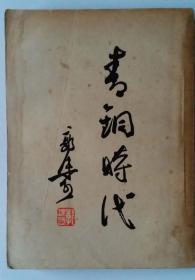 青铜時代
郭沫若